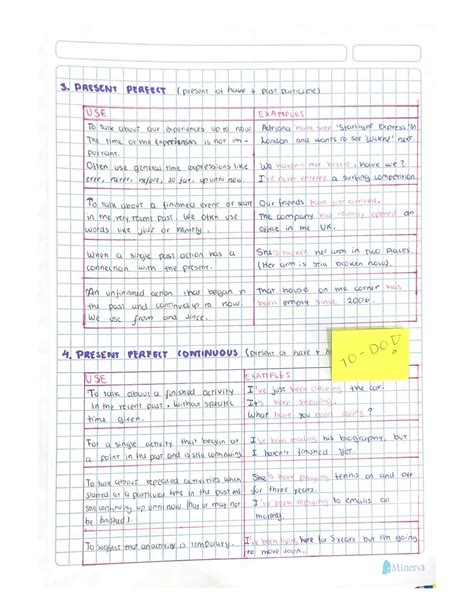 3. PRESENT PERFECT (present of have + past participle)
USE
EXAMPLES
To talk about our experiences up to now.
The time of the experiences is not im-
portant.
Often use general time expressions like
ever, never, before, so far, up until now.
Adriana have seen 'Starlight Express' in
London and wants to see 'Wicked' next.
We haven't met before, have we?
I've never entered a surfing competition.
To talk about a finished event or state
in the very recent past. We often use
words like just or recently.
Our friends have just arrived.
The company has recently opened an
office in the UK.
When a single past action has a
connection with the present.
She's broken her arm in two places.
(Her arm is still broken now).
An unfinished action that began in
the past and continues up to now.
We use from and since.
That house on the corner has
been empty since 2006.
4. PRESENT PERFECT CONTINUOUS (present of have + b
TO-DO!
USE
EXAMPLES
To talk about a finished activity
in the recent past. Without specific
time given.
I've just been cleaning the car.
It's been snowing.
What have you been doing?
For a single activity that began at
a point in the past and is still continuing.
I've been reading his biography, but
I haven't finished yet.
To talk about repeated activities which
started at a particular time in the past and
still continuing up until now (has or may not
be finished).
She's been playing tennis on and off
for three years.
I've been replying to emails all
morning.
To suggest that an activity is temporary.
I've been living here for 5 years but I'm going
to move soon.
Minerva